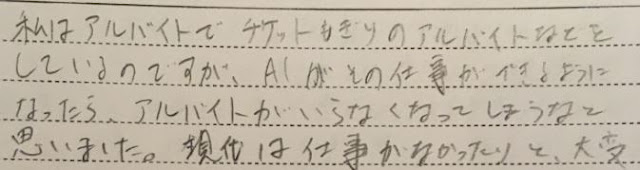 私はアルバイトでチケットもぎりのアルバイトなどを
しているのですが、AIがその仕事ができるように
なったら、アルバイトがいらなくなってしまうなと
思いました。現代は仕事がなかったりと、大変